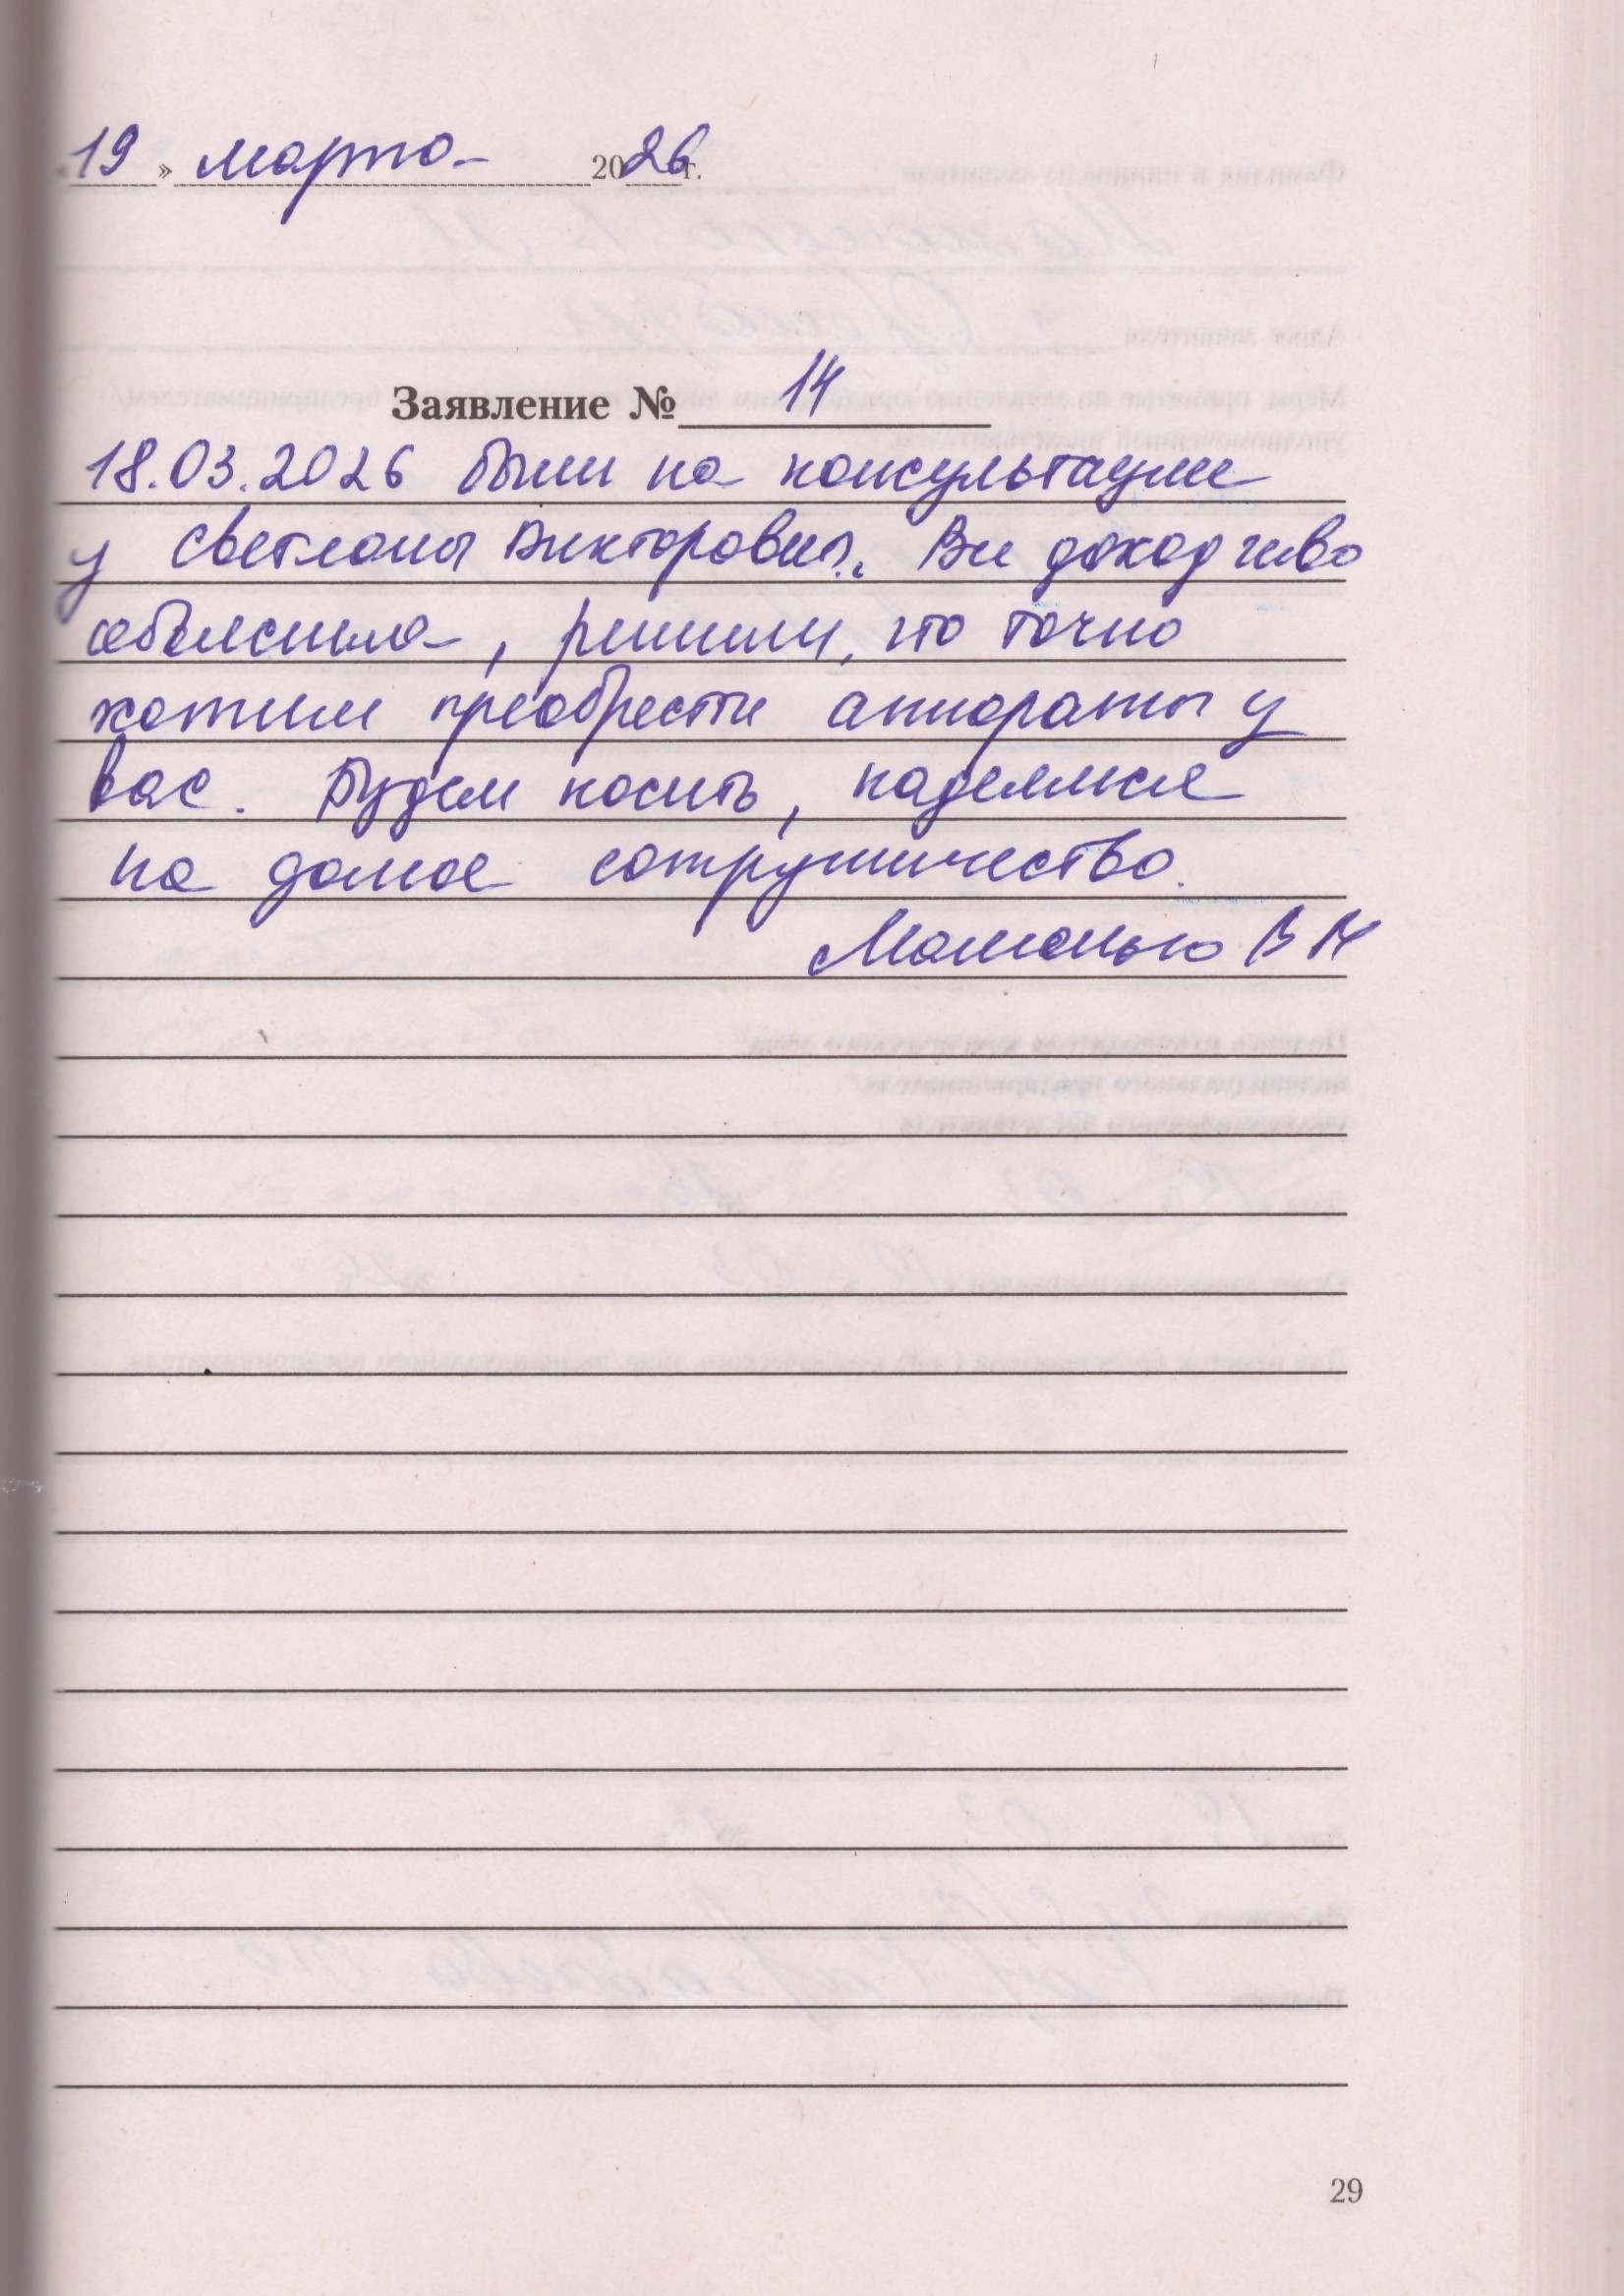 19 » марта 2026 г.
Заявление № 14
18.03.2026 были на консультации
у Светланы Викторовны. Все доходчиво
объяснила, решили, что точно
хотим преобрести аппараты у
вас. Будем носить, надеемся
на далное сотрудничество.
В М
29